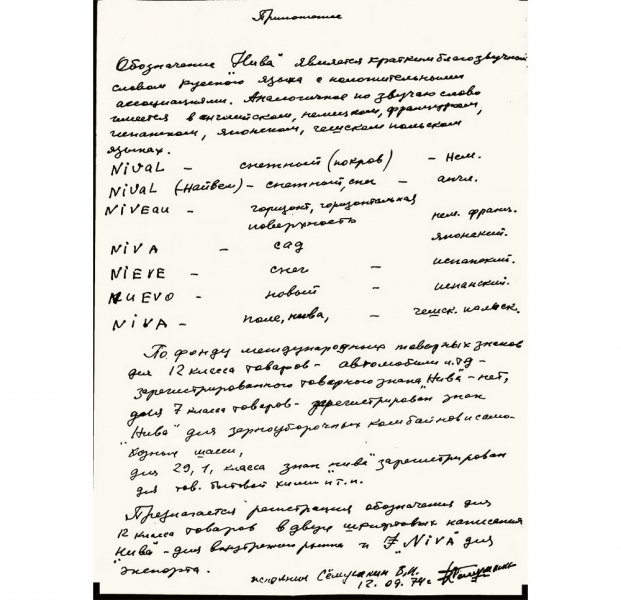 Приложение
Обозначение "Нива" является кратким благозвучным
словом русского языка с положительными
ассоциациями. Аналогичное по звучаю слово
имеется в английском, немецком, французском,
испанском, японском, чешском польском
языках.
NiVaL – снежный (покров) – нем.
NiVaL (Найвел) – снежный, снег – англ.
NiVEau – горизонт, горизонтальная поверхность нем. франц.
NiVA – сад японский.
NiEVE – снег – испанский.
NUEVO – новый – испанский.
NiVA – поле, нива, – чешск. польск.
По фонду международных товарных знаков
для 12 класса товаров - автомобили и.т.д -
зарегистрированного товарного знака "Нива" - нет,
для 7 класса товаров - зарегистрирован знак
"Нива" для зерноуборочных комбайнов и само-
ходных шасси,
для 29, 1, класса знак "нива" зарегистрирован
для тов. бытовой химии и т.п.
Предлагается регистрация обозначения для
12 класса товаров в двух шрифтовых написания
"Нива" - для внутреннего рынка и "NiVA" для
экспорта.
исполнил Сёмушкин В.М.
12.09.74г